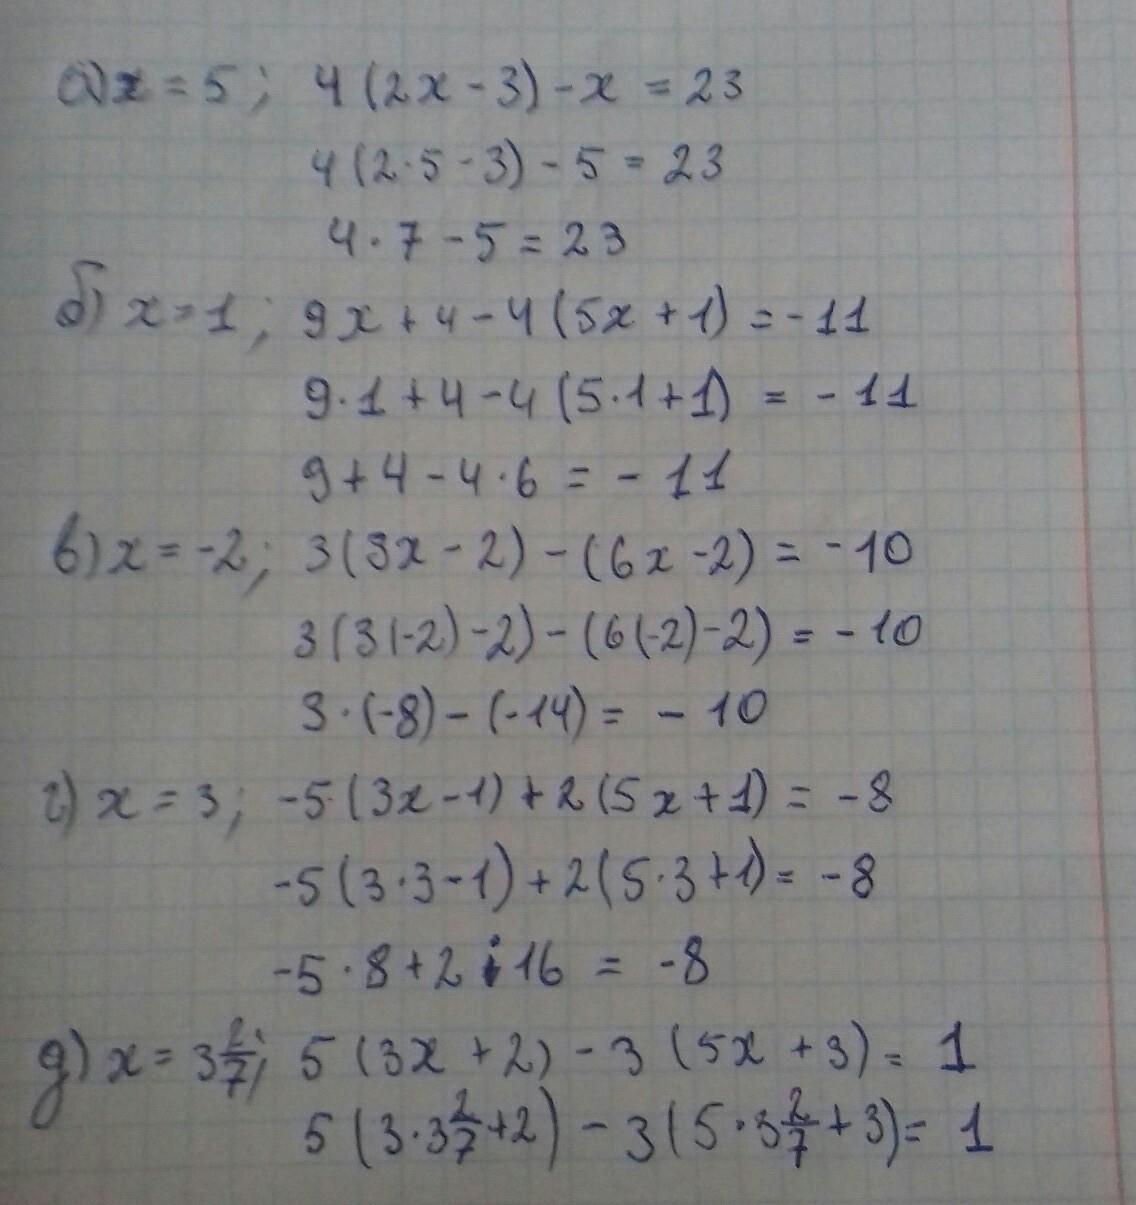 а) x = 5; 4(2x - 3) - x = 23
4(2·5 - 3) - 5 = 23
4·7 - 5 = 23
б) x = 1; 9x + 4 - 4(5x + 1) = -11
9·1 + 4 - 4(5·1 + 1) = -11
9 + 4 - 4·6 = -11
в) x = -2; 3(3x - 2) - (6x - 2) = -10
3(3(-2) - 2) - (6(-2) - 2) = -10
3·(-8) - (-14) = -10
г) x = 3; -5·(3x - 1) + 2(5x + 1) = -8
-5(3·3 - 1) + 2(5·3 + 1) = -8
-5·8 + 2·16 = -8
д) x = 3 2/7; 5(3x + 2) - 3(5x + 3) = 1
5(3·3 2/7 + 2) - 3(5·3 2/7 + 3) = 1